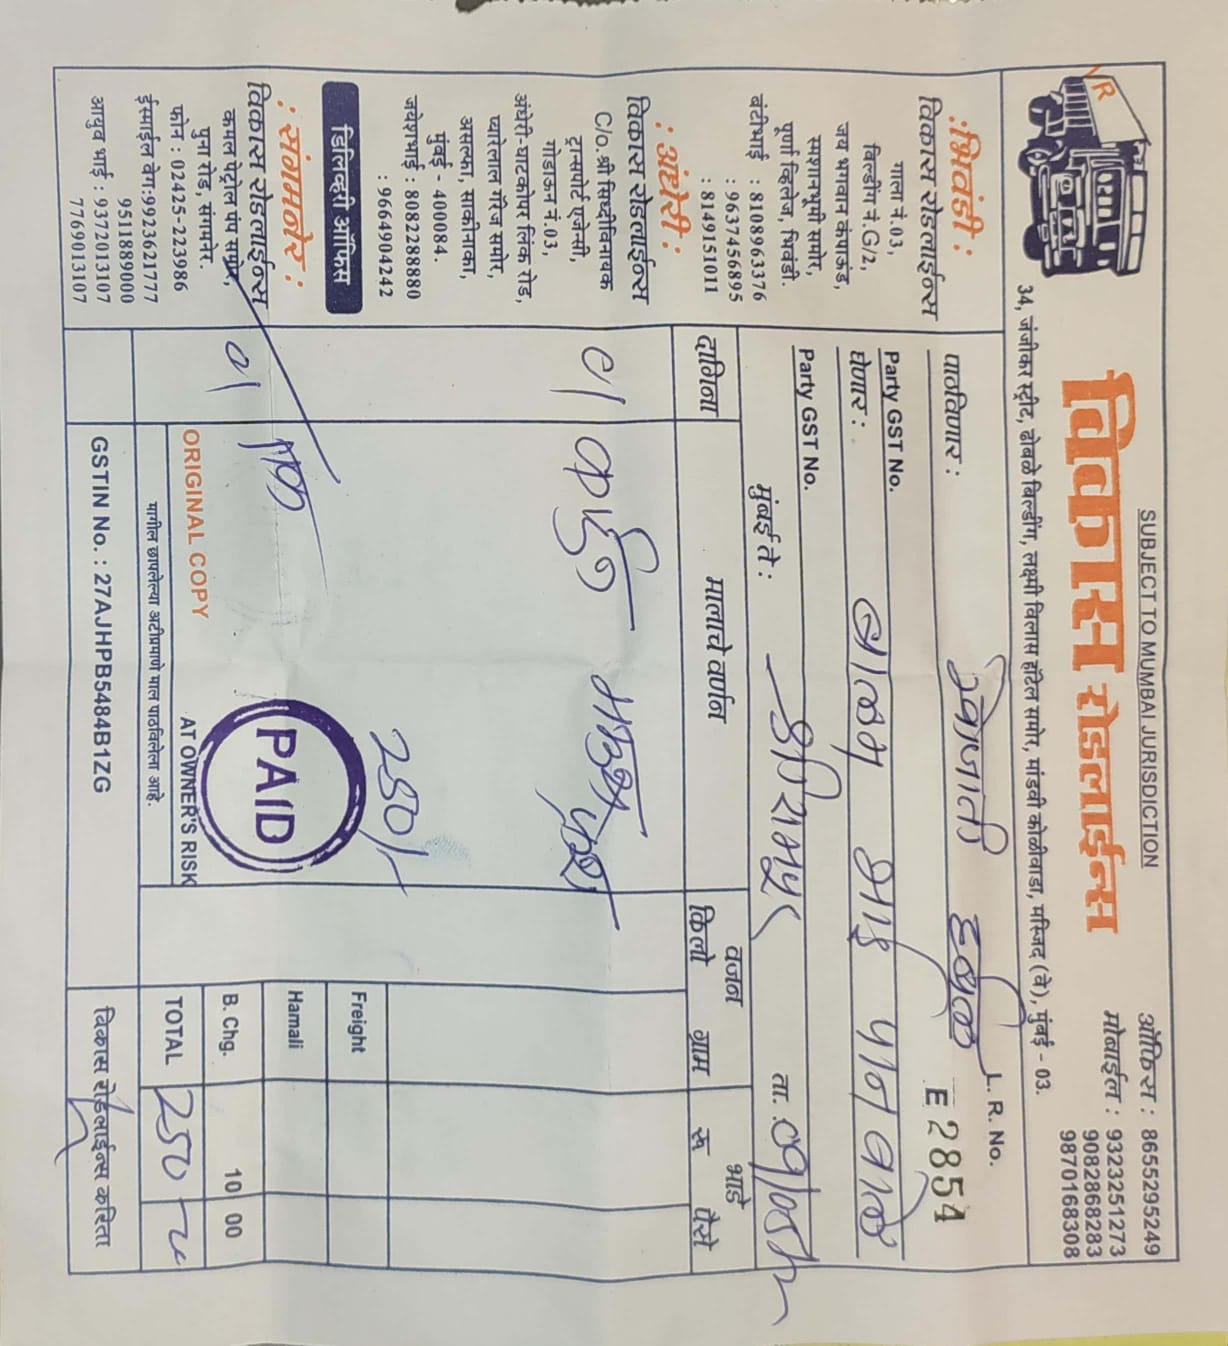 SUBJECT TO MUMBAI JURISDICTION
विकास रोडलाईन्स
ऑफिस : 8655295249
मोबाईल : 9323251273
9082868283
9870168308
34, जंजीकर स्ट्रीट, ढोबळे बिल्डींग, लक्ष्मी विलास हॉटेल समोर, मांडवी कोळीवाडा, मस्जिद (वे), मुंबई - 03.
VR
:भिवंडी :
विकास रोडलाईन्स
गाला नं.03,
बिल्डींग नं.G/2,
जय भगवान कंपाऊंड,
स्मशानभूमी समोर,
पूर्णा व्हिलेज, भिवंडी.
बंटीभाई : 8108963376
: 9637456895
: 8149151011
: अंधेरी :
विकास रोडलाईन्स
C/o. श्री सिध्दीविनायक
ट्रान्सपोर्ट एजेन्सी,
गोडाऊन नं.03,
अंधेरी-घाटकोपर लिंक रोड,
प्यारेलाल गॅरेज समोर,
असल्फा, साकीनाका,
मुंबई - 400084.
जयेशभाई : 8082288880
: 9664904242
डिलिव्हरी ऑफिस
: संगमनेर :
विकास रोडलाईन्स
कमल पेट्रोल पंप समोर,
पुना रोड, संगमनेर.
फोन : 02425-223986
ईस्माईल वेग:9923621777
9511889000
आयुब भाई : 9372013107
7769013107
L. R. No.
E 2854
पाठविणार :
Party GST No.
घेणार :
Party GST No.
मुंबई ते :
ता. 09/05/
दागिना
मालाचे वर्णन
वजन
किलो ग्राम
भाडे
रू पैसे
01
250/-
01
PAID
Freight
Hamali
B. Chg. 10 00
TOTAL 250
ORIGINAL COPY
AT OWNER'S RISK
मागील छापलेल्या अटीप्रमाणे माल पाठविलेला आहे.
GSTIN No. : 27AJHPB5484B1ZG
विकास रोडलाईन्स करिता